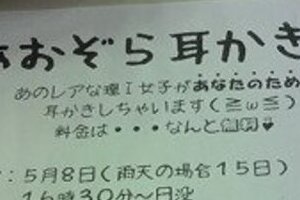 あおぞら耳かき
あのレアな理工女子があなたのため
耳かきしちゃいます(≧ω≦)
料金は・・・なんと無料♥
:5月8日(雨天の場合15日)
16時30分〜日没